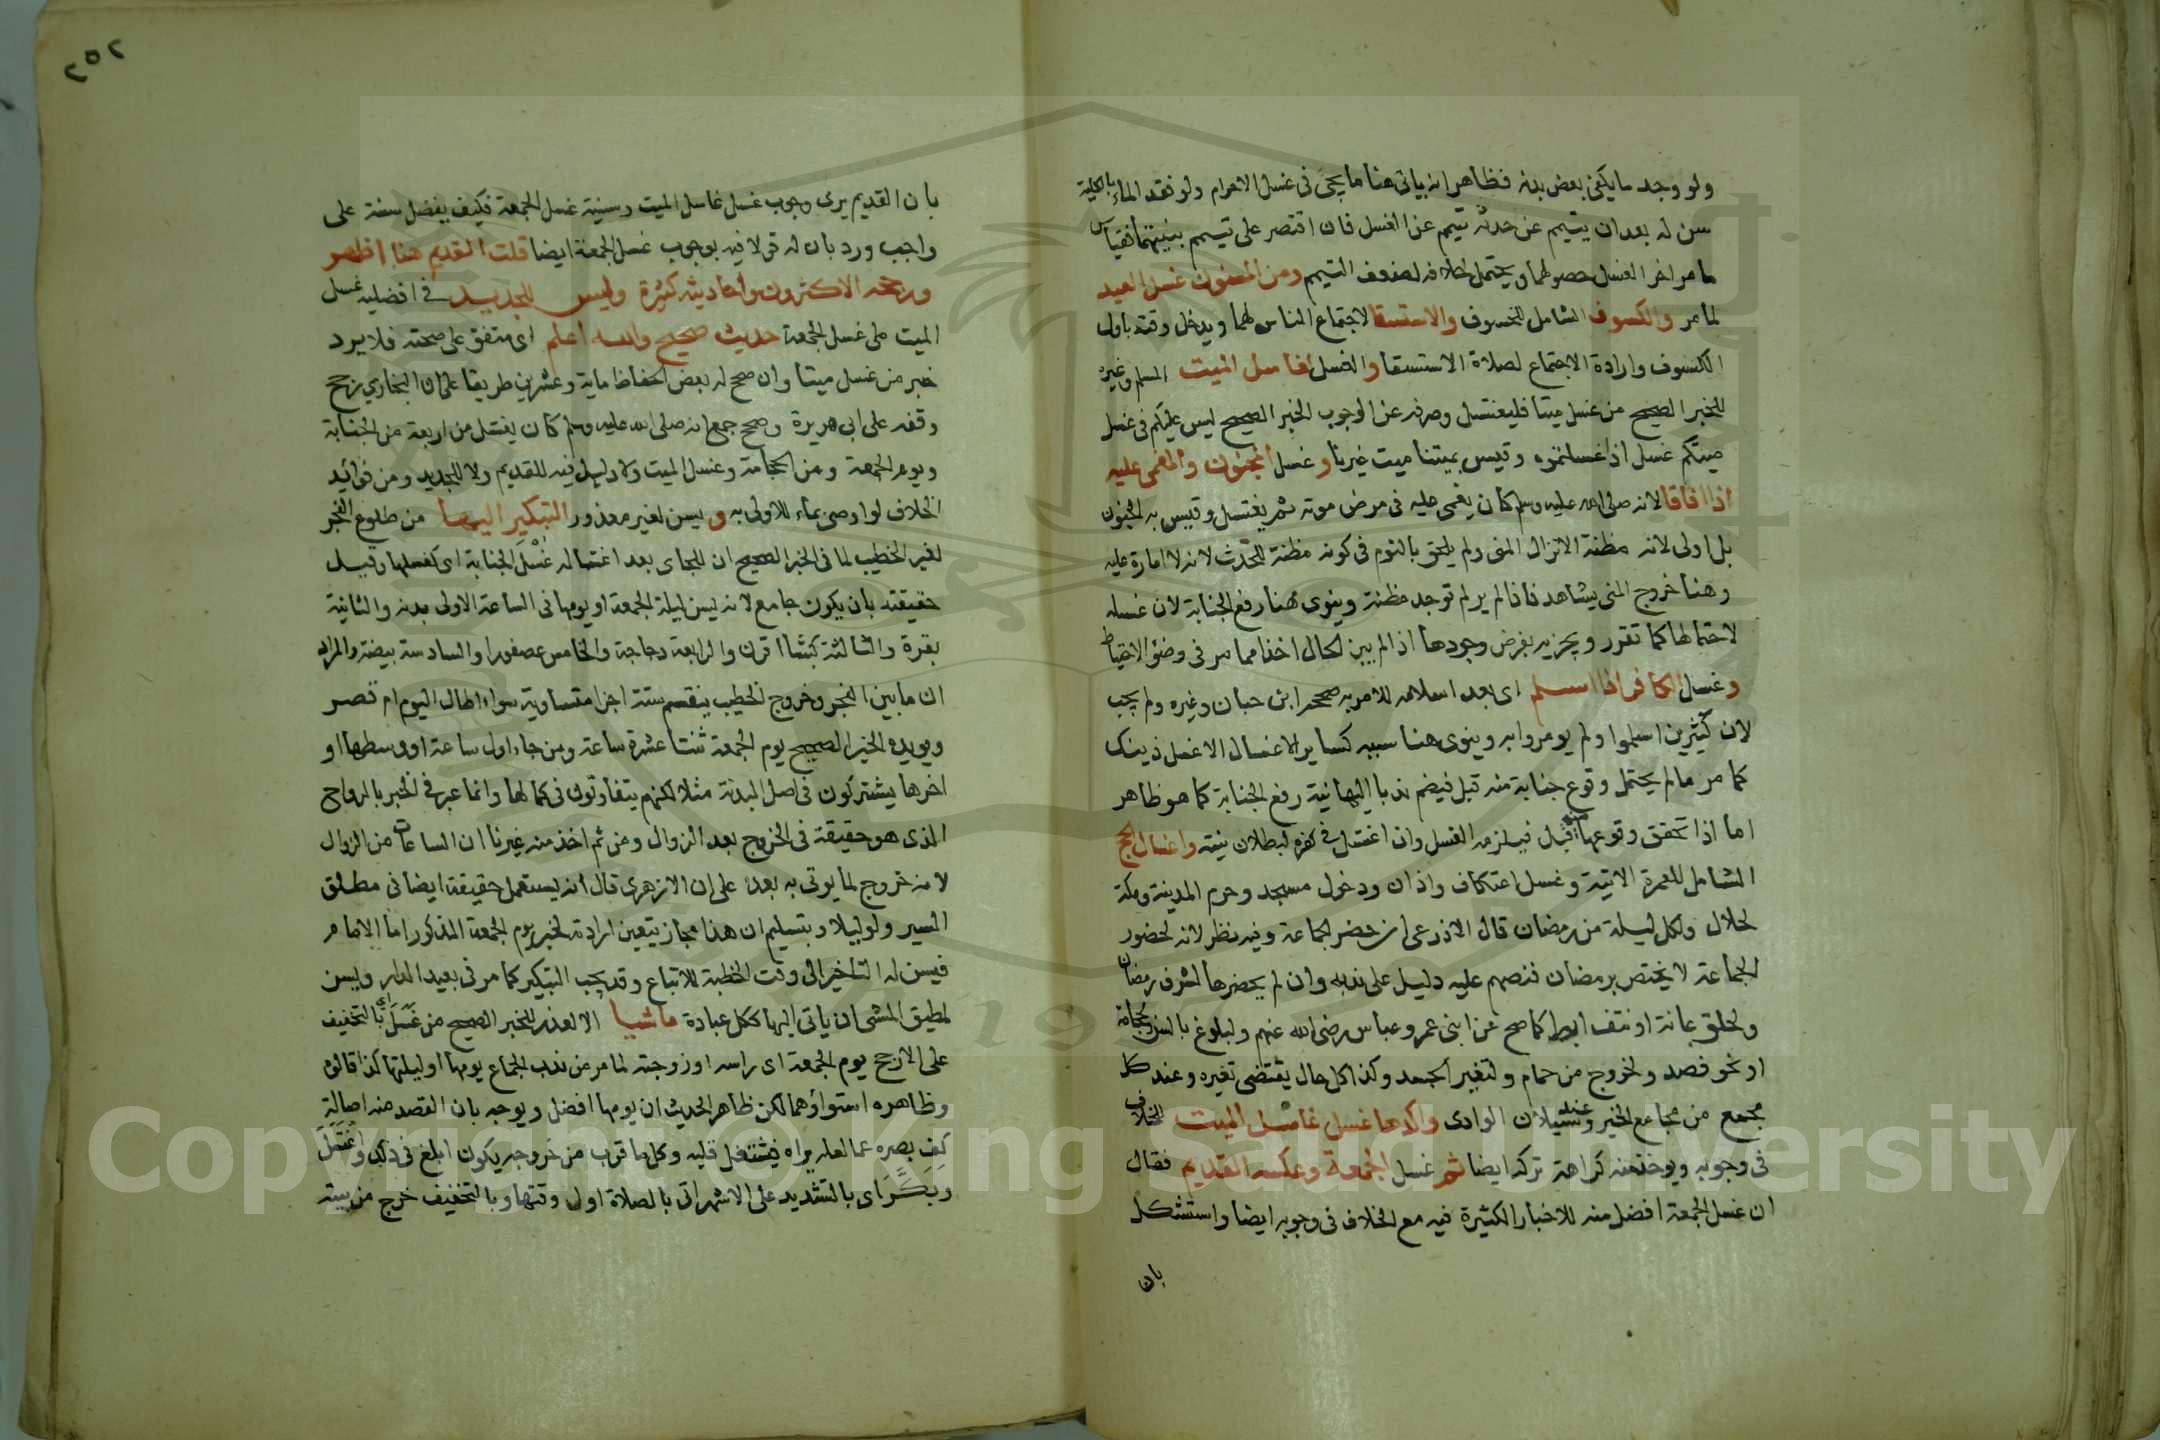 ولو وجد ما يكفي بعض بدنه فظاهر انه ياتي هنا ما يجيء في غسل الاحرام ولو فقد الماء بالكلية
سن له بعد ان يتيمم عن حدثه تيمم عن الغسل فان اقتصر على تيمم بنيتهما فقياس
ما مر اخر الغسل حصولهما ويحتمل خلافه لضعف التيمم ومن المسنون غسل العيد
لما مر والكسوف الشامل للخسوف والاستسقا لاجتماع الناس لهما ويدخل وقته باول
الكسوف وارادة الاجتماع لصلاة الاستسقا والغسل لغاسل الميت المسلم وغيره
للخبر الصحيح من غسل ميتا فليغتسل وصرفه عن الوجوب الخبر الصحيح ليس عليكم في غسل
ميتكم غسل اذا غسلتموه وقيس بميتنا ميت غيرنا وغسل المجنون والمغمى عليه
اذا افاقا لانه صلى الله عليه وسلم كان يغمى عليه في مرض موته ثم يغتسل وقيس به المجنون
بل اولى لانه مظنة الانزال المني ولم يلحق بالنوم في كونه مظنة للحدث لانه لا امارة عليه
وهنا خروج المني يشاهد فاذا لم ير لم توجد مظنة وينوى هنا رفع الجنابة لان غسله
لاحتمالها كما تقرر ويجزيه بفرض وجودها اذا لم يبن الحال اخذا مما مر في وضوء الاحتياط
وغسل الكافر اذا اسلم اى بعد اسلامه للامر به صححه ابن حبان وغيره ولم يجب
لان كثيرين اسلموا ولم يومروا به وينوى هنا سببه كساير الاغسال الا غسل ذينك
كما مر ما لم يحتمل وقوع جنابة منه قبل فيضم ندبا اليها نية رفع الجنابة كما هو ظاهر
اما اذا تحقق وقوعها منه قبل فيلزمه الغسل وان اغتسل في كفره لبطلان نيته واغسال الحج
الشامل للعمرة الاتية وغسل اعتكاف واذان ودخول مسجد وحرم المدينة ومكة
لحلال ولكل ليلة من رمضان قال الاذرعى ان حضر الجماعة وفيه نظر لانه لحضور
الجماعة لا يختص برمضان فنصهم عليه دليل على ندبه وان لم يحضرها لشرف رمضان
ولحلق عانة او نتف ابط كما صح عن ابنى عمر وعباس رضى الله عنهم ولبلوغ بالسن ولحجامة
او نحو فصد ولخروج من حمام ولتغير الجسد وكذا كل حال يقتضى تغيره وعند كل
مجمع من مجامع الخير وعند سيلان الوادى واكدها غسل غاسل الميت للخلاف
في وجوبه ويوخذ منه كراهة تركه ايضا ثم غسل الجمعة وعكسه القديم فقال
ان غسل الجمعة افضل منه للاخبار الكثيرة فيه مع الخلاف في وجوبه ايضا واستشكل
بان
٢٥٢
بان القديم يرى وجوب غسل غاسل الميت وسنية غسل الجمعة فكيف يفضل سنة على
واجب ورد بان له قولا فيه بوجوب غسل الجمعة ايضا قلت القديم هنا اظهر
ورجحه الاكثرون واحاديثه كثيرة وليس للجديد في افضلية غسل
الميت على غسل الجمعة حديث صحيح والله اعلم اى متفق على صحته فلا يرد
خبر من غسل ميتا وان صح له بعض الحفاظ ماية وعشرين طريقا على ان البخاري رجح
وقفه على ابي هريرة وصح جمع انه صلى الله عليه وسلم كان يغتسل من اربعة من الجنابة
ويوم الجمعة ومن الحجامة وغسل الميت ولا دليل فيه للقديم ولا للجديد ومن فوائد
الخلاف لو اوصى بماء للاولى به ويسن لغير معذور التبكير اليها من طلوع الفجر
لغير الخطيب لما في الخبر الصحيح ان للجاي بعد اغتساله غسل الجنابة اى كغسلها وقيل
حقيقته بان يكون جامع لانه يسن ليلة الجمعة او يومها في الساعة الاولى بدنة والثانية
بقرة والثالثة كبشا اقرن والرابعة دجاجة والخامس عصفورا والسادسة بيضة والمراد
ان ما بين الفجر وخروج الخطيب ينقسم ستة اجزا متساوية سواء اطال اليوم ام قصر
ويويده الخبر الصحيح يوم الجمعة ثنتا عشرة ساعة ومن جاء اول ساعة او وسطها او
اخرها يشتركون في اصل البدنة مثلا لكنهم يتفاوتون في كمالها وانما عبر في الخبر بالرواح
الذى هو حقيقة في الخروج بعد الزوال ومن ثم اخذ منه غيرنا ان الساعات من الزوال
لانه خروج لما يوتى به بعده على ان الازهرى قال انه يستعمل حقيقة ايضا في مطلق
السير ولو ليلا وبتسليم ان هذا مجاز يتعين ارادته لخبر يوم الجمعة المذكور اما الامام
فيسن له التاخير الى وقت الخطبة للاتباع وقد يجب التبكير كما مر في بعيد الدار ويسن
لمطيق المشى ان ياتى اليها ككل عبادة ماشيا الا لعذر للخبر الصحيح من غسل اى بالتخفيف
على الارجح يوم الجمعة اى راسه او زوجته لما مر من ندب الجماع يومها او ليلتها كذا قالوه
وظاهره استواؤهما لكن ظاهر الحديث ان يومها افضل ويوجه بان القصد منه اصالة
كف بصره عما لعله يراه فيشتغل قلبه وكل ما قرب من خروجه يكون ابلغ في ذلك واغتسل
وبكر اى بالتشديد على الاشهر اتى بالصلاة اول وقتها وبالتخفيف خرج من بيته
Copyright © King Saud University